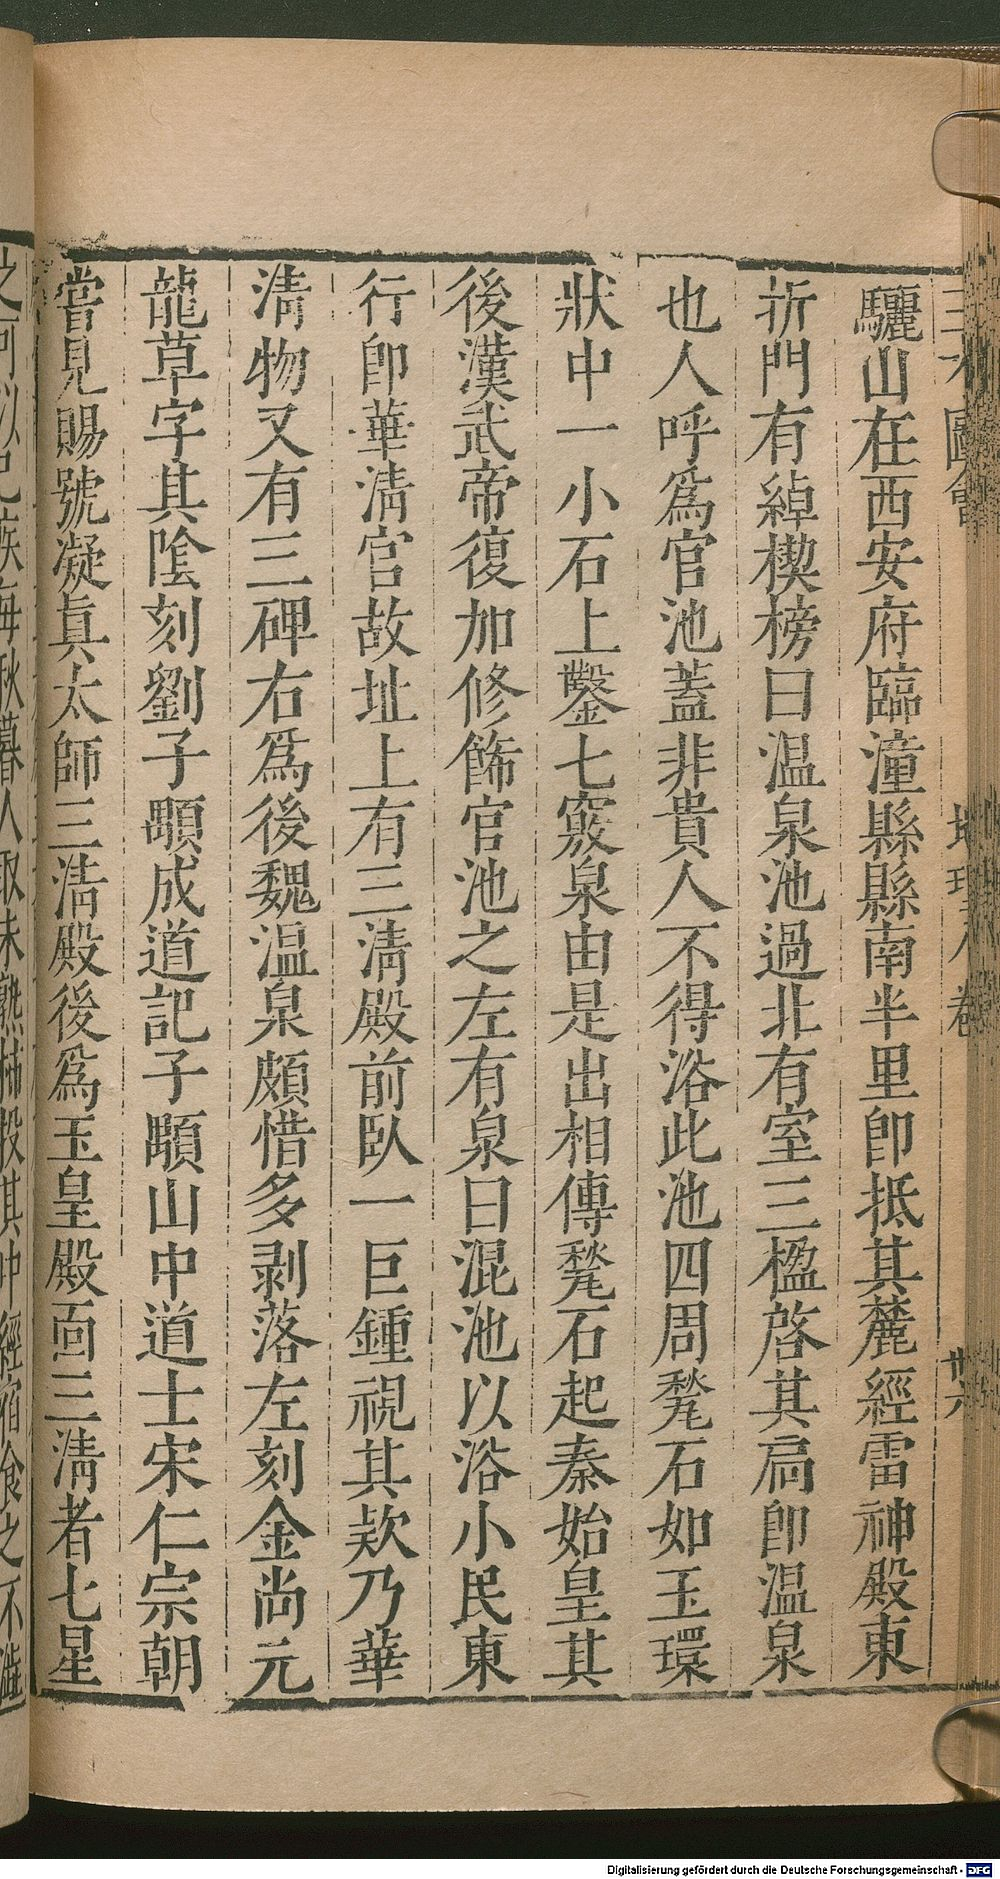 三才圖會 地理八卷 卅六
驪山在西安府臨潼縣縣南半里即抵其麓經雷神殿東
折門有綽楔榜曰温泉池過北有室三楹啓其扃即温泉
也人呼爲官池蓋非貴人不得浴此池四周甃石如玉環
狀中一小石上鑿七竅泉由是出相傳甃石起秦始皇其
後漢武帝復加修飾官池之左有泉曰混池以浴小民東
行即華清官故址上有三清殿前臥一巨鍾視其欵乃華
清物又有三碑右爲後魏温泉頗惜多剥落左刻金尚元
龍草字其陰刻劉子顒成道記子顒山中道士宋仁宗朝
嘗見賜號凝眞太師三清殿後爲玉皇殿面三清者七星
之可以已疾每秋暮人取未熟柿投其中經宿食之不澁
Digitalisierung gefördert durch die Deutsche Forschungsgemeinschaft - DFG